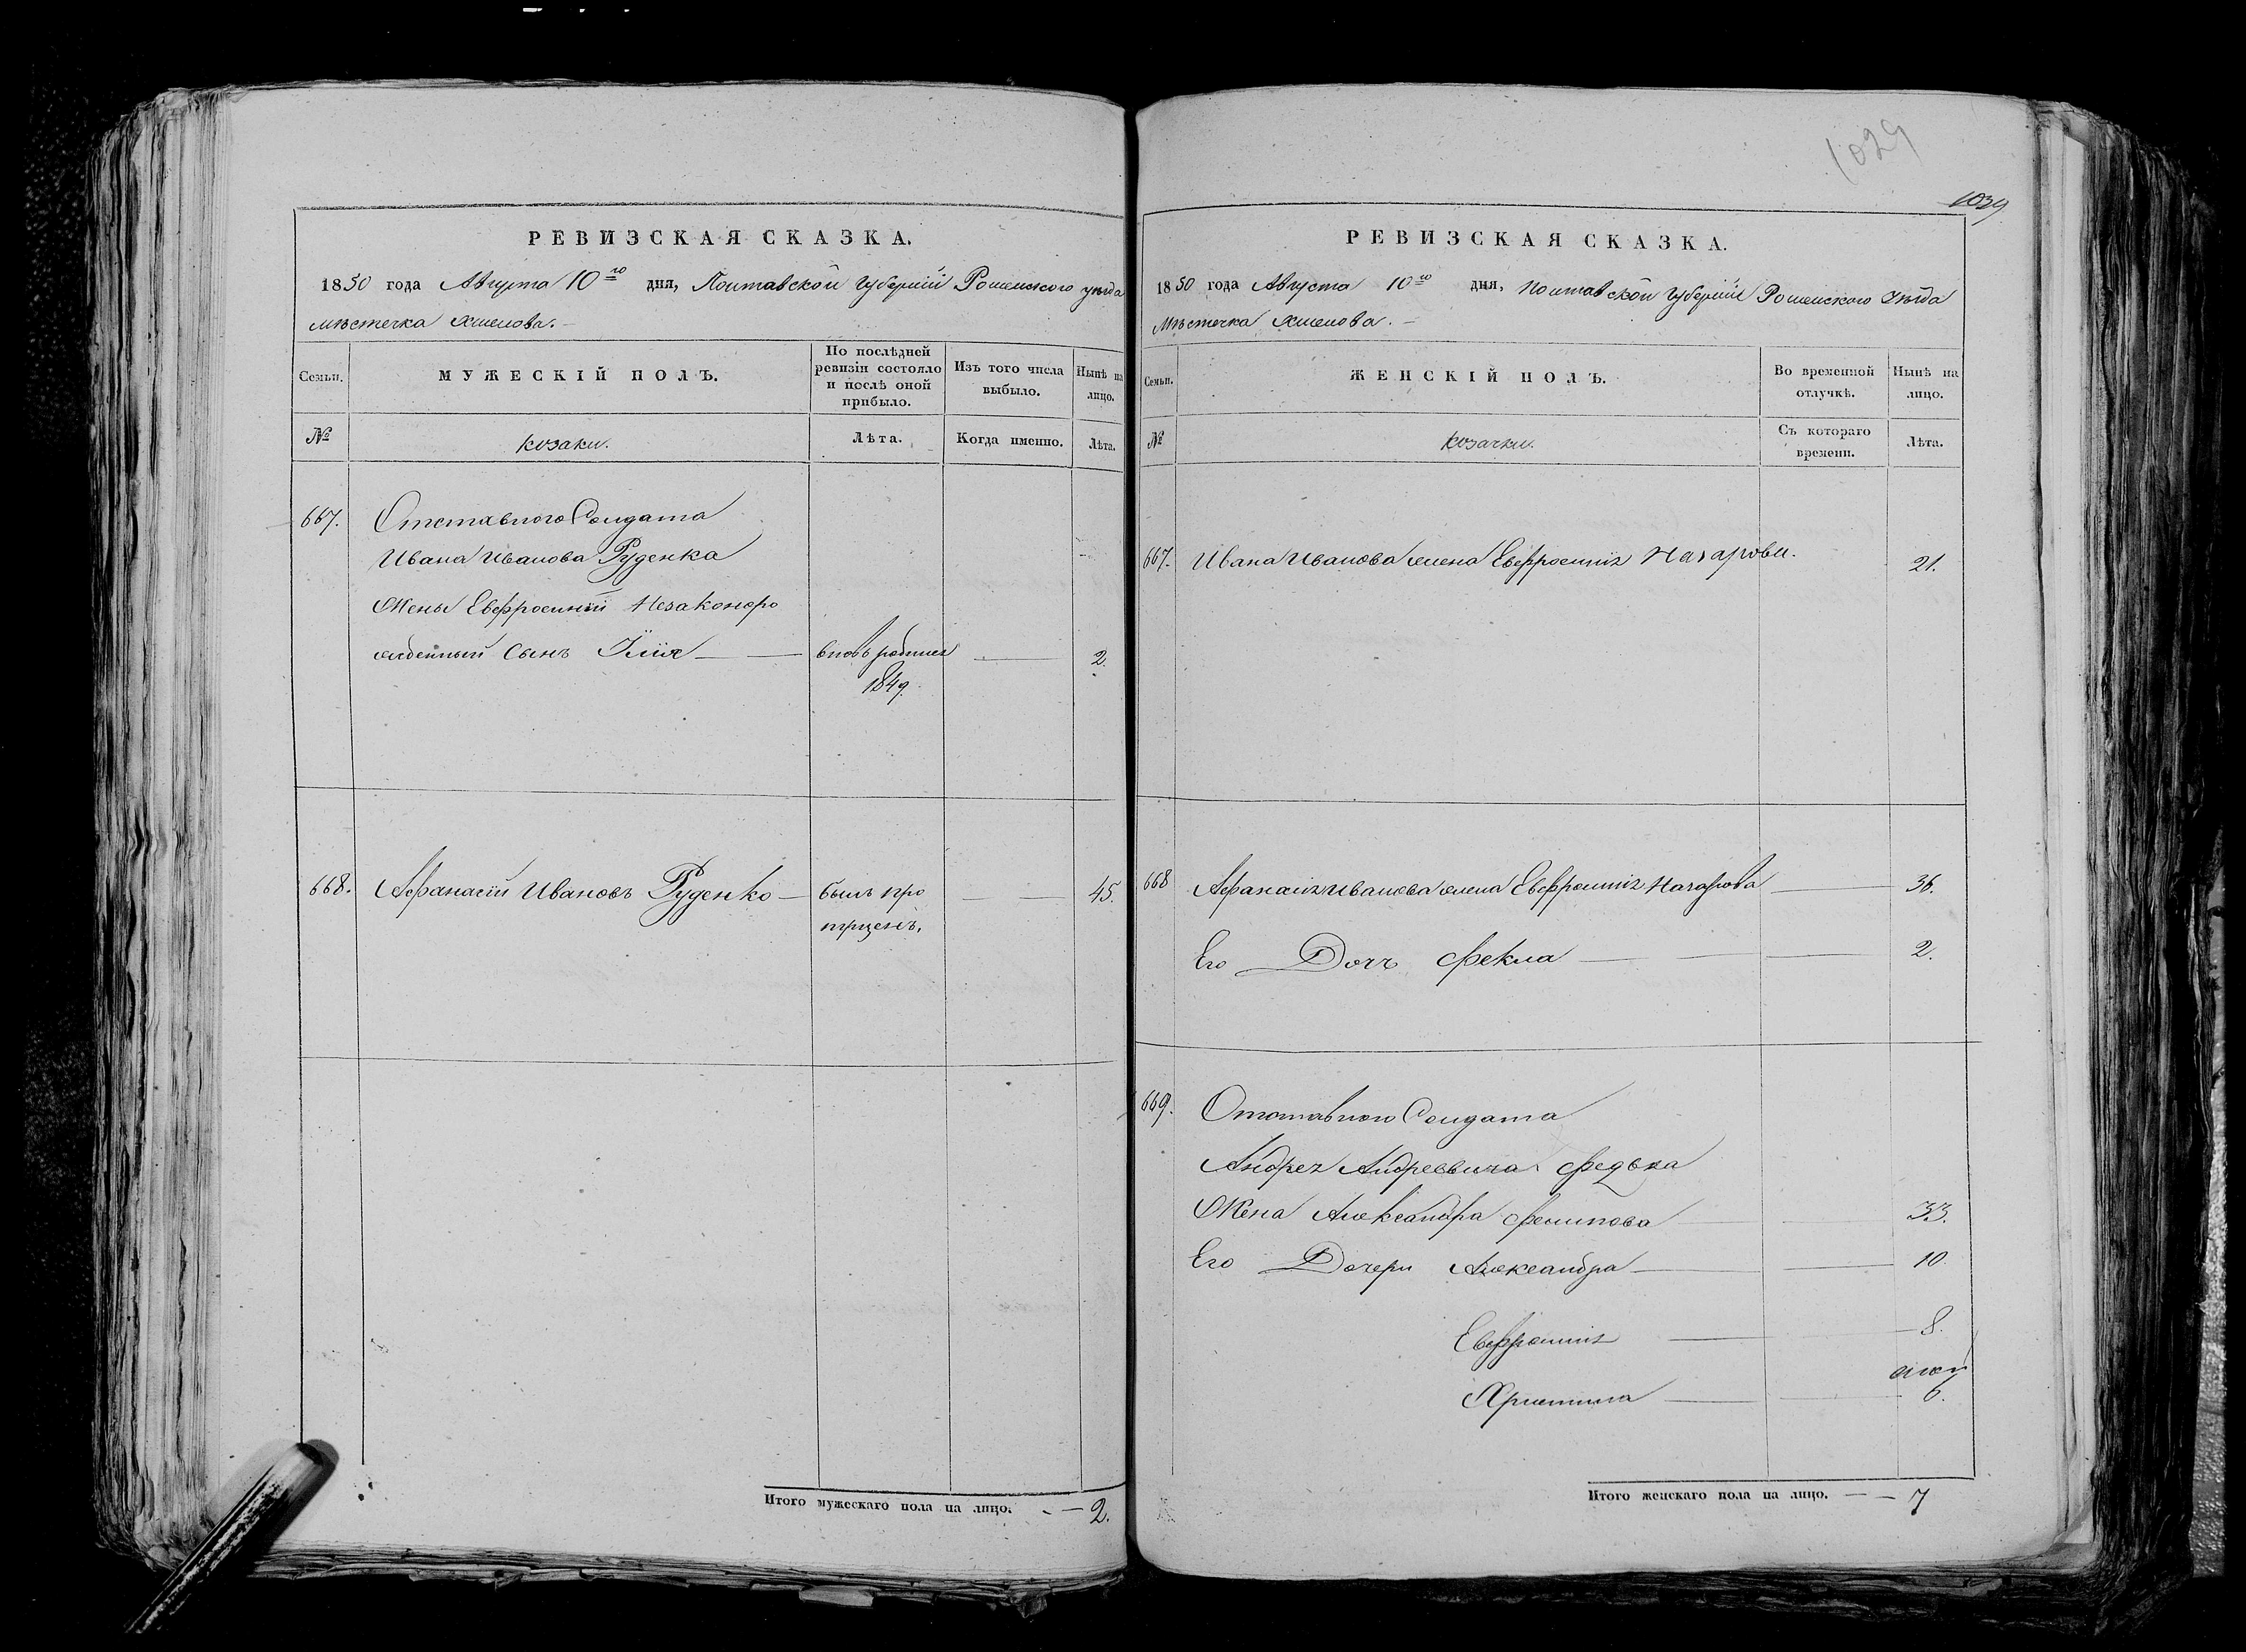 1029
1039
РЕВИЗСКАЯ СКАЗКА.
1850 года Августа 10го дня, Полтавской Губернии Роменского уезда
местечка Хмелова.
Семьи.
МУЖЕСКІЙ ПОЛЪ.
По послѣдней ревизіи состояло и послѣ оной прибыло.
Изъ того числа выбыло.
Нынѣ на лицо.
№
козаки.
Лѣта.
Когда именно.
Лѣта.
667. Отставного Солдата
Ивана Иванова Руденка
Жены Евфросинии Незаконоро
жденный Сынъ Илія — вновь родился — 2.
1849.
668. Афанасій Ивановъ Руденко — былъ про — 45.
пущенъ.
Итого мужескаго пола на лицо. — 2.
РЕВИЗСКАЯ СКАЗКА.
1850 года Августа 10го дня, Полтавской Губернии Роменского уезда
Местечка Хмелова. —
Семьи.
ЖЕНСКІЙ ПОЛЪ.
Во временной отлучкѣ.
Нынѣ на лицо.
№
козачки.
Съ котораго времени.
Лѣта.
667. Ивана Иванова жена Евфросинія Назарова. 21.
668 Афанасія Иванова жена Евфросинія Назарова — 36.
Его Дочь Фекла — 2.
669. Отставного Солдата
Андрея Андреевича Федька
Жена Александра Филипова — 33.
Его Дочери Александра — 10.
Евфросинія — 8.
Христина — 6.
Итого женскаго пола на лицо. — — 7